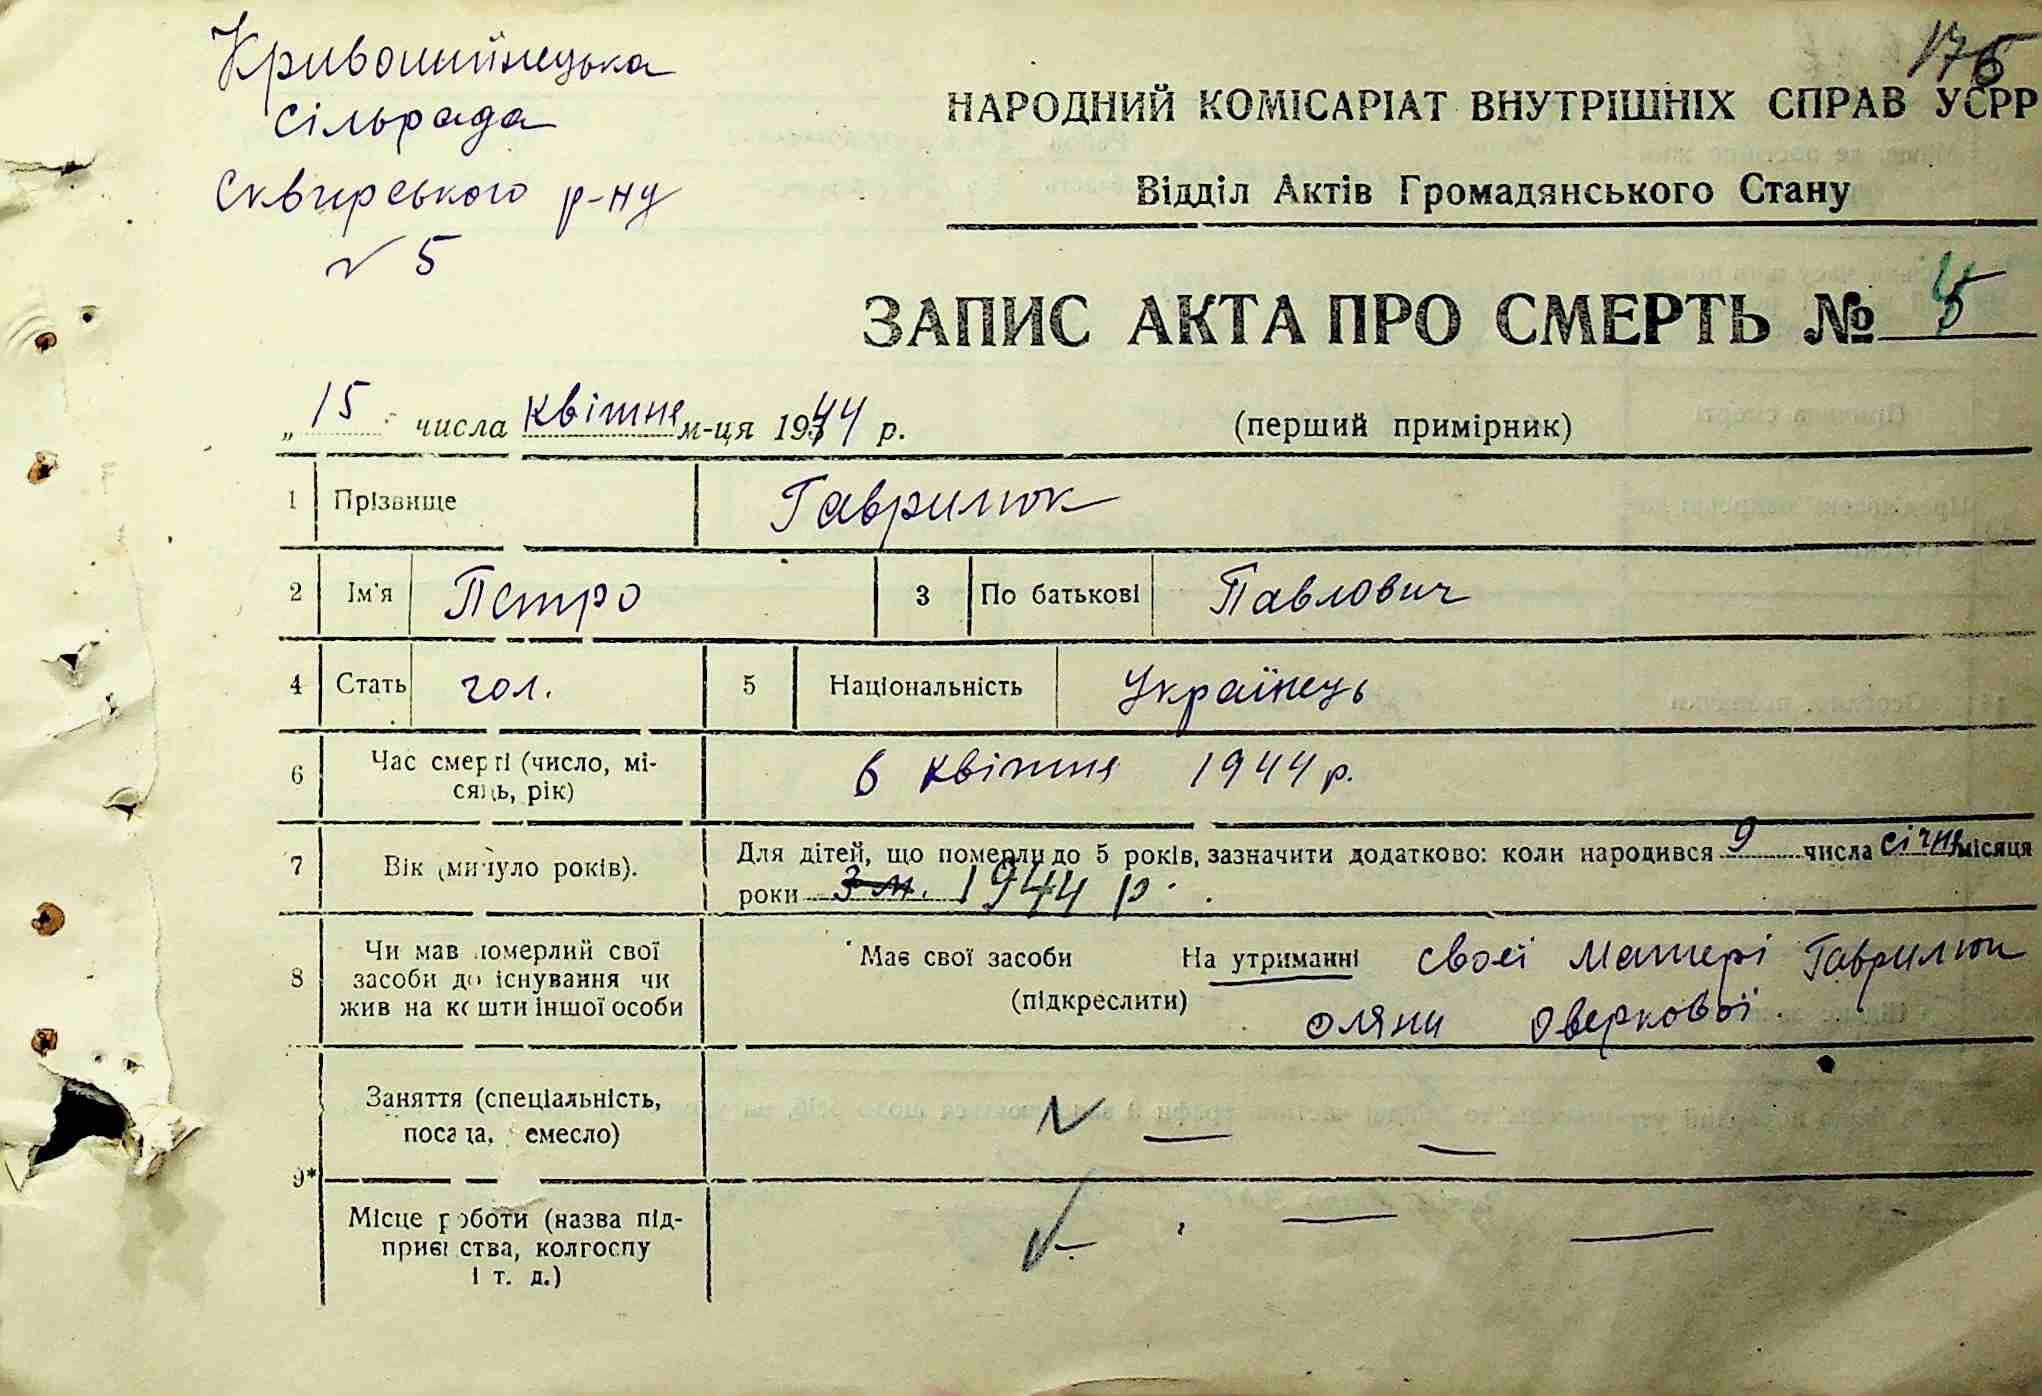 Кривошиїнецька
сільрада
Сквирського р-ну
№ 5
176
НАРОДНИЙ КОМІСАРІАТ ВНУТРІШНІХ СПРАВ УСРР
Відділ Актів Громадянського Стану
ЗАПИС АКТА ПРО СМЕРТЬ № 5
„ 15 числа квітня м-ця 1944 р. (перший примірник)
1 Прізвище Гаврилюк
2 Ім'я Петро 3 По батькові Павлович
4 Стать чол. 5 Національність Українець
6 Час смерті (число, мі-
сяць, рік) 6 квітня 1944 р.
7 Вік (минуло років). Для дітей, що померли до 5 років, зазначити додатково: коли народився 9 числа січня місяця
роки 3 м. 1944 р.
8 Чи мав померлий свої
засоби до існування чи
жив на кошти іншої особи
Має свої засоби На утриманні своєї матері Гаврилюк
(підкреслити) Оляни Оверкової
9* Заняття (спеціальність,
посада, ремесло)
Місце роботи (назва під-
приємства, колгоспу
і т. д.)